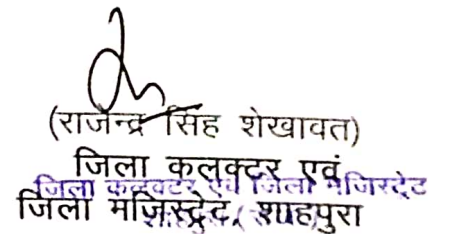 (राजेन्द्र सिंह शेखावत)
जिला कलक्टर एवं
जिला कलक्टर एवं जिला मजिस्ट्रेट
जिला मजिस्ट्रेट, शाहपुरा